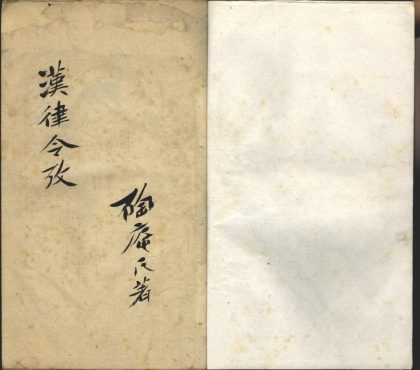 漢律令攷
陶庵氏著